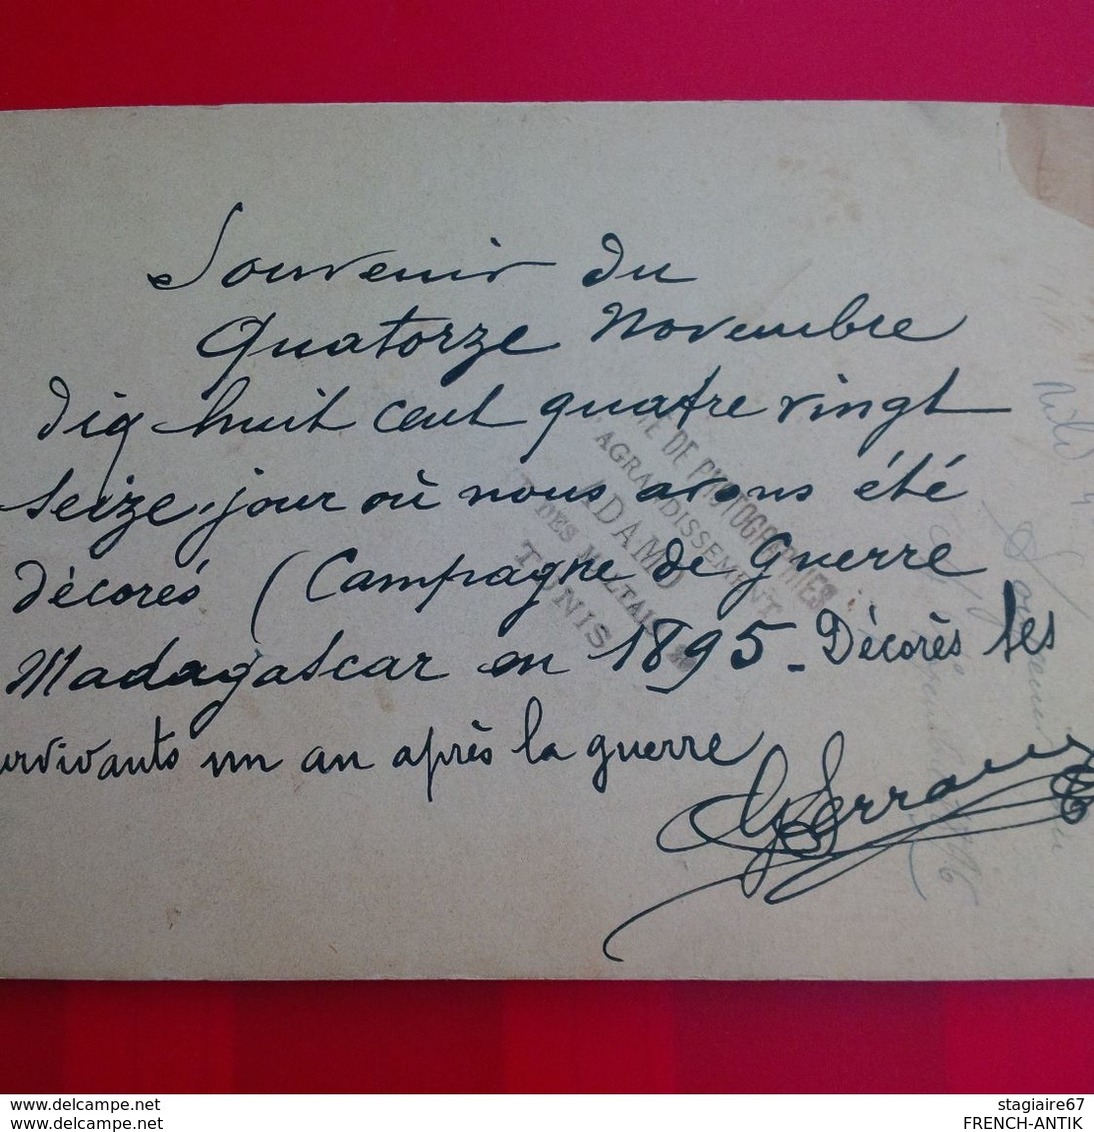 Souvenir du
Quatorze Novembre
dix huit cent quatre vingt
seize, jour où nous avons été
décorés (Campagne de guerre
Madagascar en 1895 - Décorés les
urvivants un an après la guerre
DE PHOTOGRAPHIES
AGRANDISSEMENT
ADAMO
DES MALTAIS
TUNIS
www.delcampe.net
stagiaire67
FRENCH-ANTIK